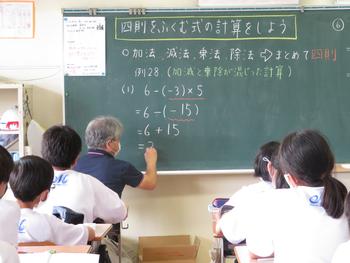 四則をふくむ式の計算をしよう
⑥
○加法、減法、乗法、除法⇨まとめて四則
例28(加減と乗除が混じった計算)
(1) 6-(-3)×5
=6-(-15)
=6+15
=2